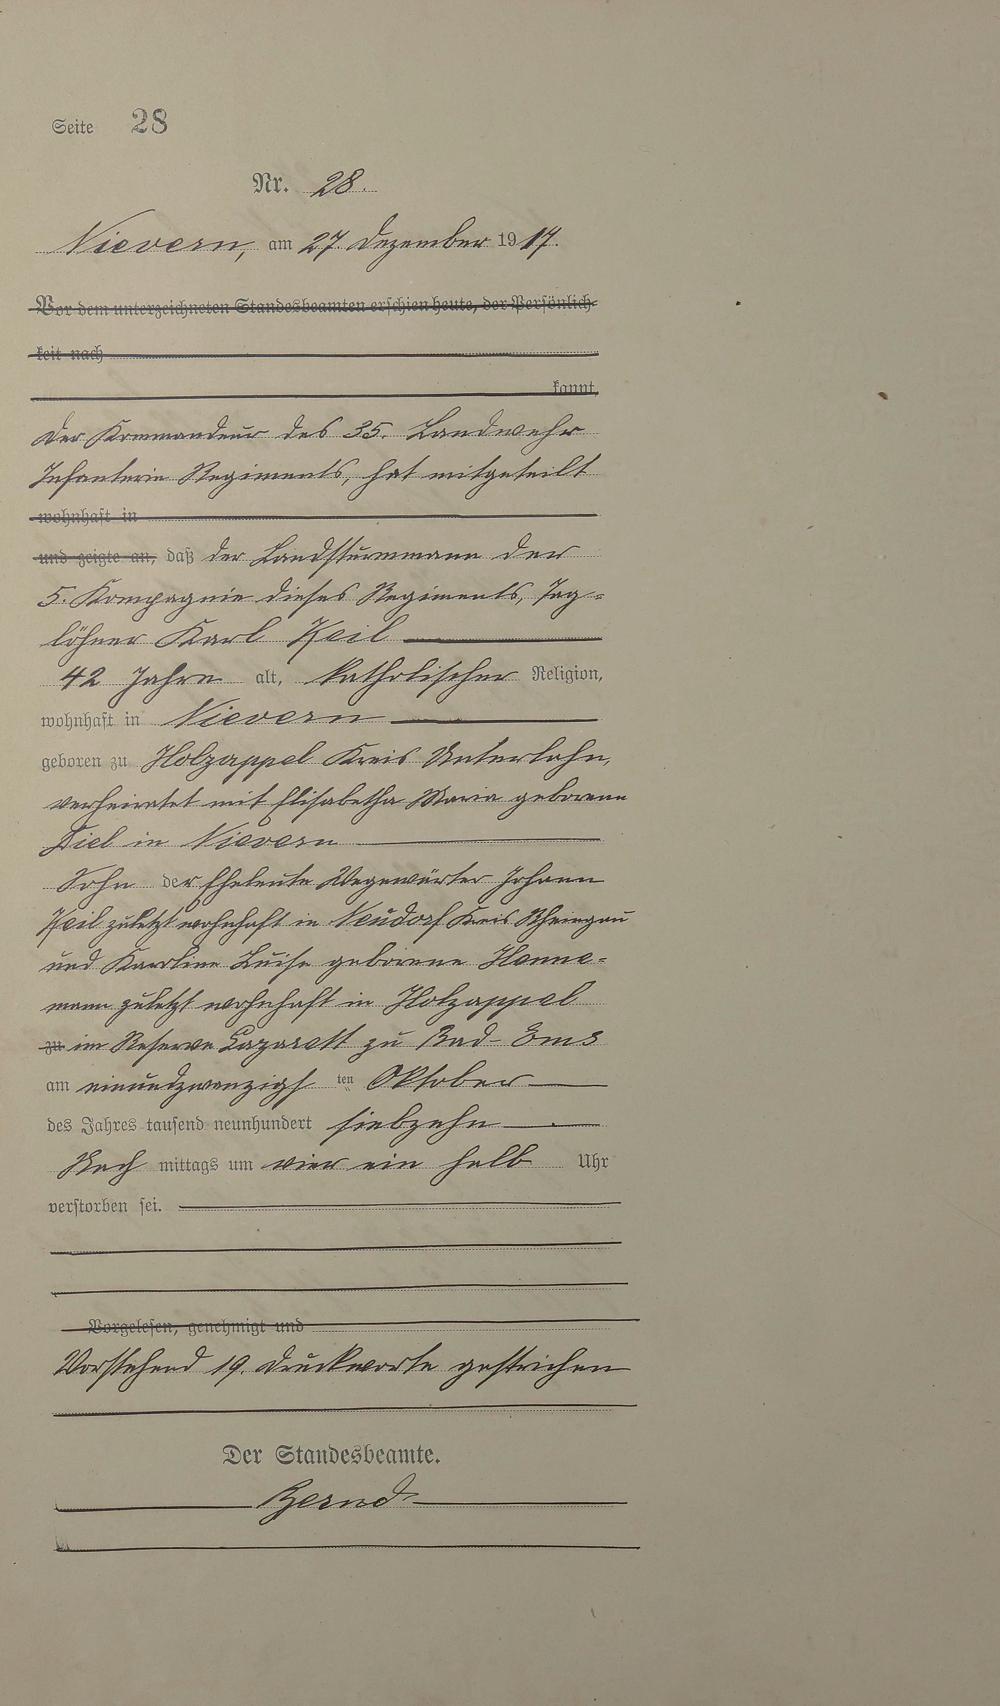 Seite 28
Nr. 28.
Nievern, am 27. Dezember 1917.
Vor dem unterzeichneten Standesbeamten erschien heute, der Persönlich-
keit nach
kannt,
Der Kommandeur des 35. Landwehr
Infanterie Regiments, hat mitgeteilt
wohnhaft in
und zeigte an, daß der Landsturmmann der
5. Kompagnie dieses Regiments, Tag-
löhner Karl Keil
42 Jahre alt, katholischer Religion,
wohnhaft in Nievern
geboren zu Holzappel Kreis Unterlahn,
verheiratet mit Elisabetha Maria geborene
Diel in Nievern
Sohn der Eheleute Wegewärter Johann
Keil zuletzt wohnhaft in Neudorf Kreis Rheingau
und Karoline Luise geborene Hanne-
mann zuletzt wohnhaft in Holzappel
zu im Reserve Lazarett zu Bad-Ems
am einundzwanzigsten Oktober
des Jahres tausend neunhundert siebzehn
Nach mittags um vier ein halb Uhr
verstorben sei.
Vorgelesen, genehmigt und
Vorstehend 19. Druckworte gestrichen
Der Standesbeamte.
Bernd